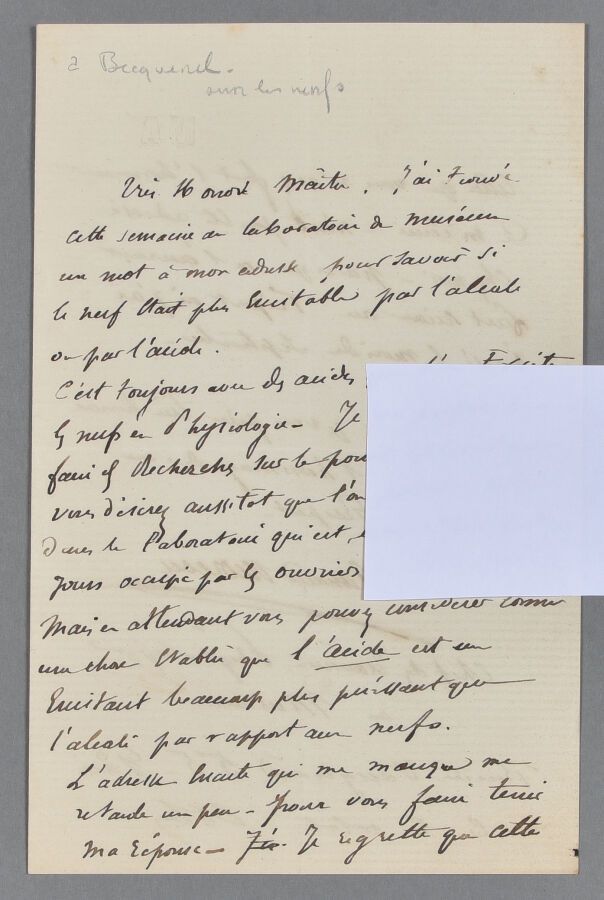 à Becquerel.
sur les nerfs
Très Honoré Maître, J'ai trouvé
cette semaine au laboratoire du muséum
un mot à mon adresse pour savoir si
le nerf était plus Excitable par l'alcali
ou par l'acide.
C'est toujours avec des acides
les nerfs en Physiologie - Je
faire les Recherches sur le
vous désirez aussitôt que l'on
Dans le laboratoire qui est,
jours occupé par les ouvriers
Mais en attendant vous pouvez considérer comme
une chose établie que l'acide est un
Excitant beaucoup plus puissant que
l'alcali par rapport aux nerfs.
L'adresse Exacte qui me manque me
retarde un peu - pour vous faire tenir
ma Réponse - Je regrette que cette